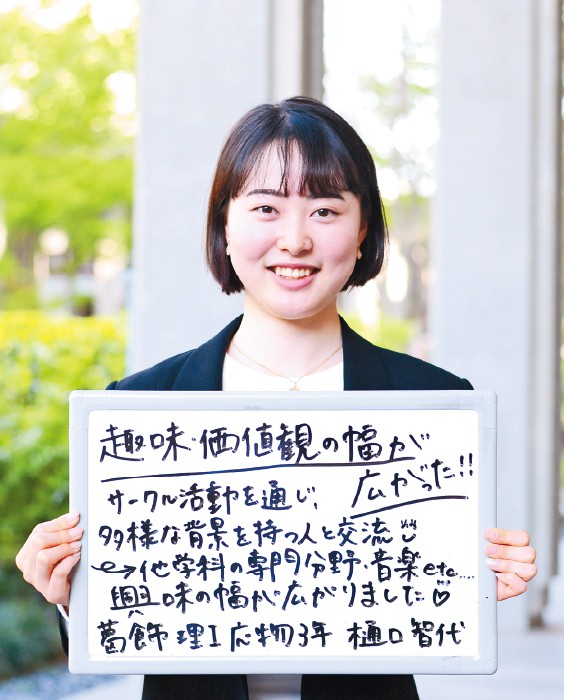 趣味・価値観の幅が
広がった!!
サークル活動を通じ、
多様な背景を持つ人と交流
→他学科の専門分野・音楽etc....
興味の幅が広がりました♡
葛飾 理工 応物3年 樋口智代